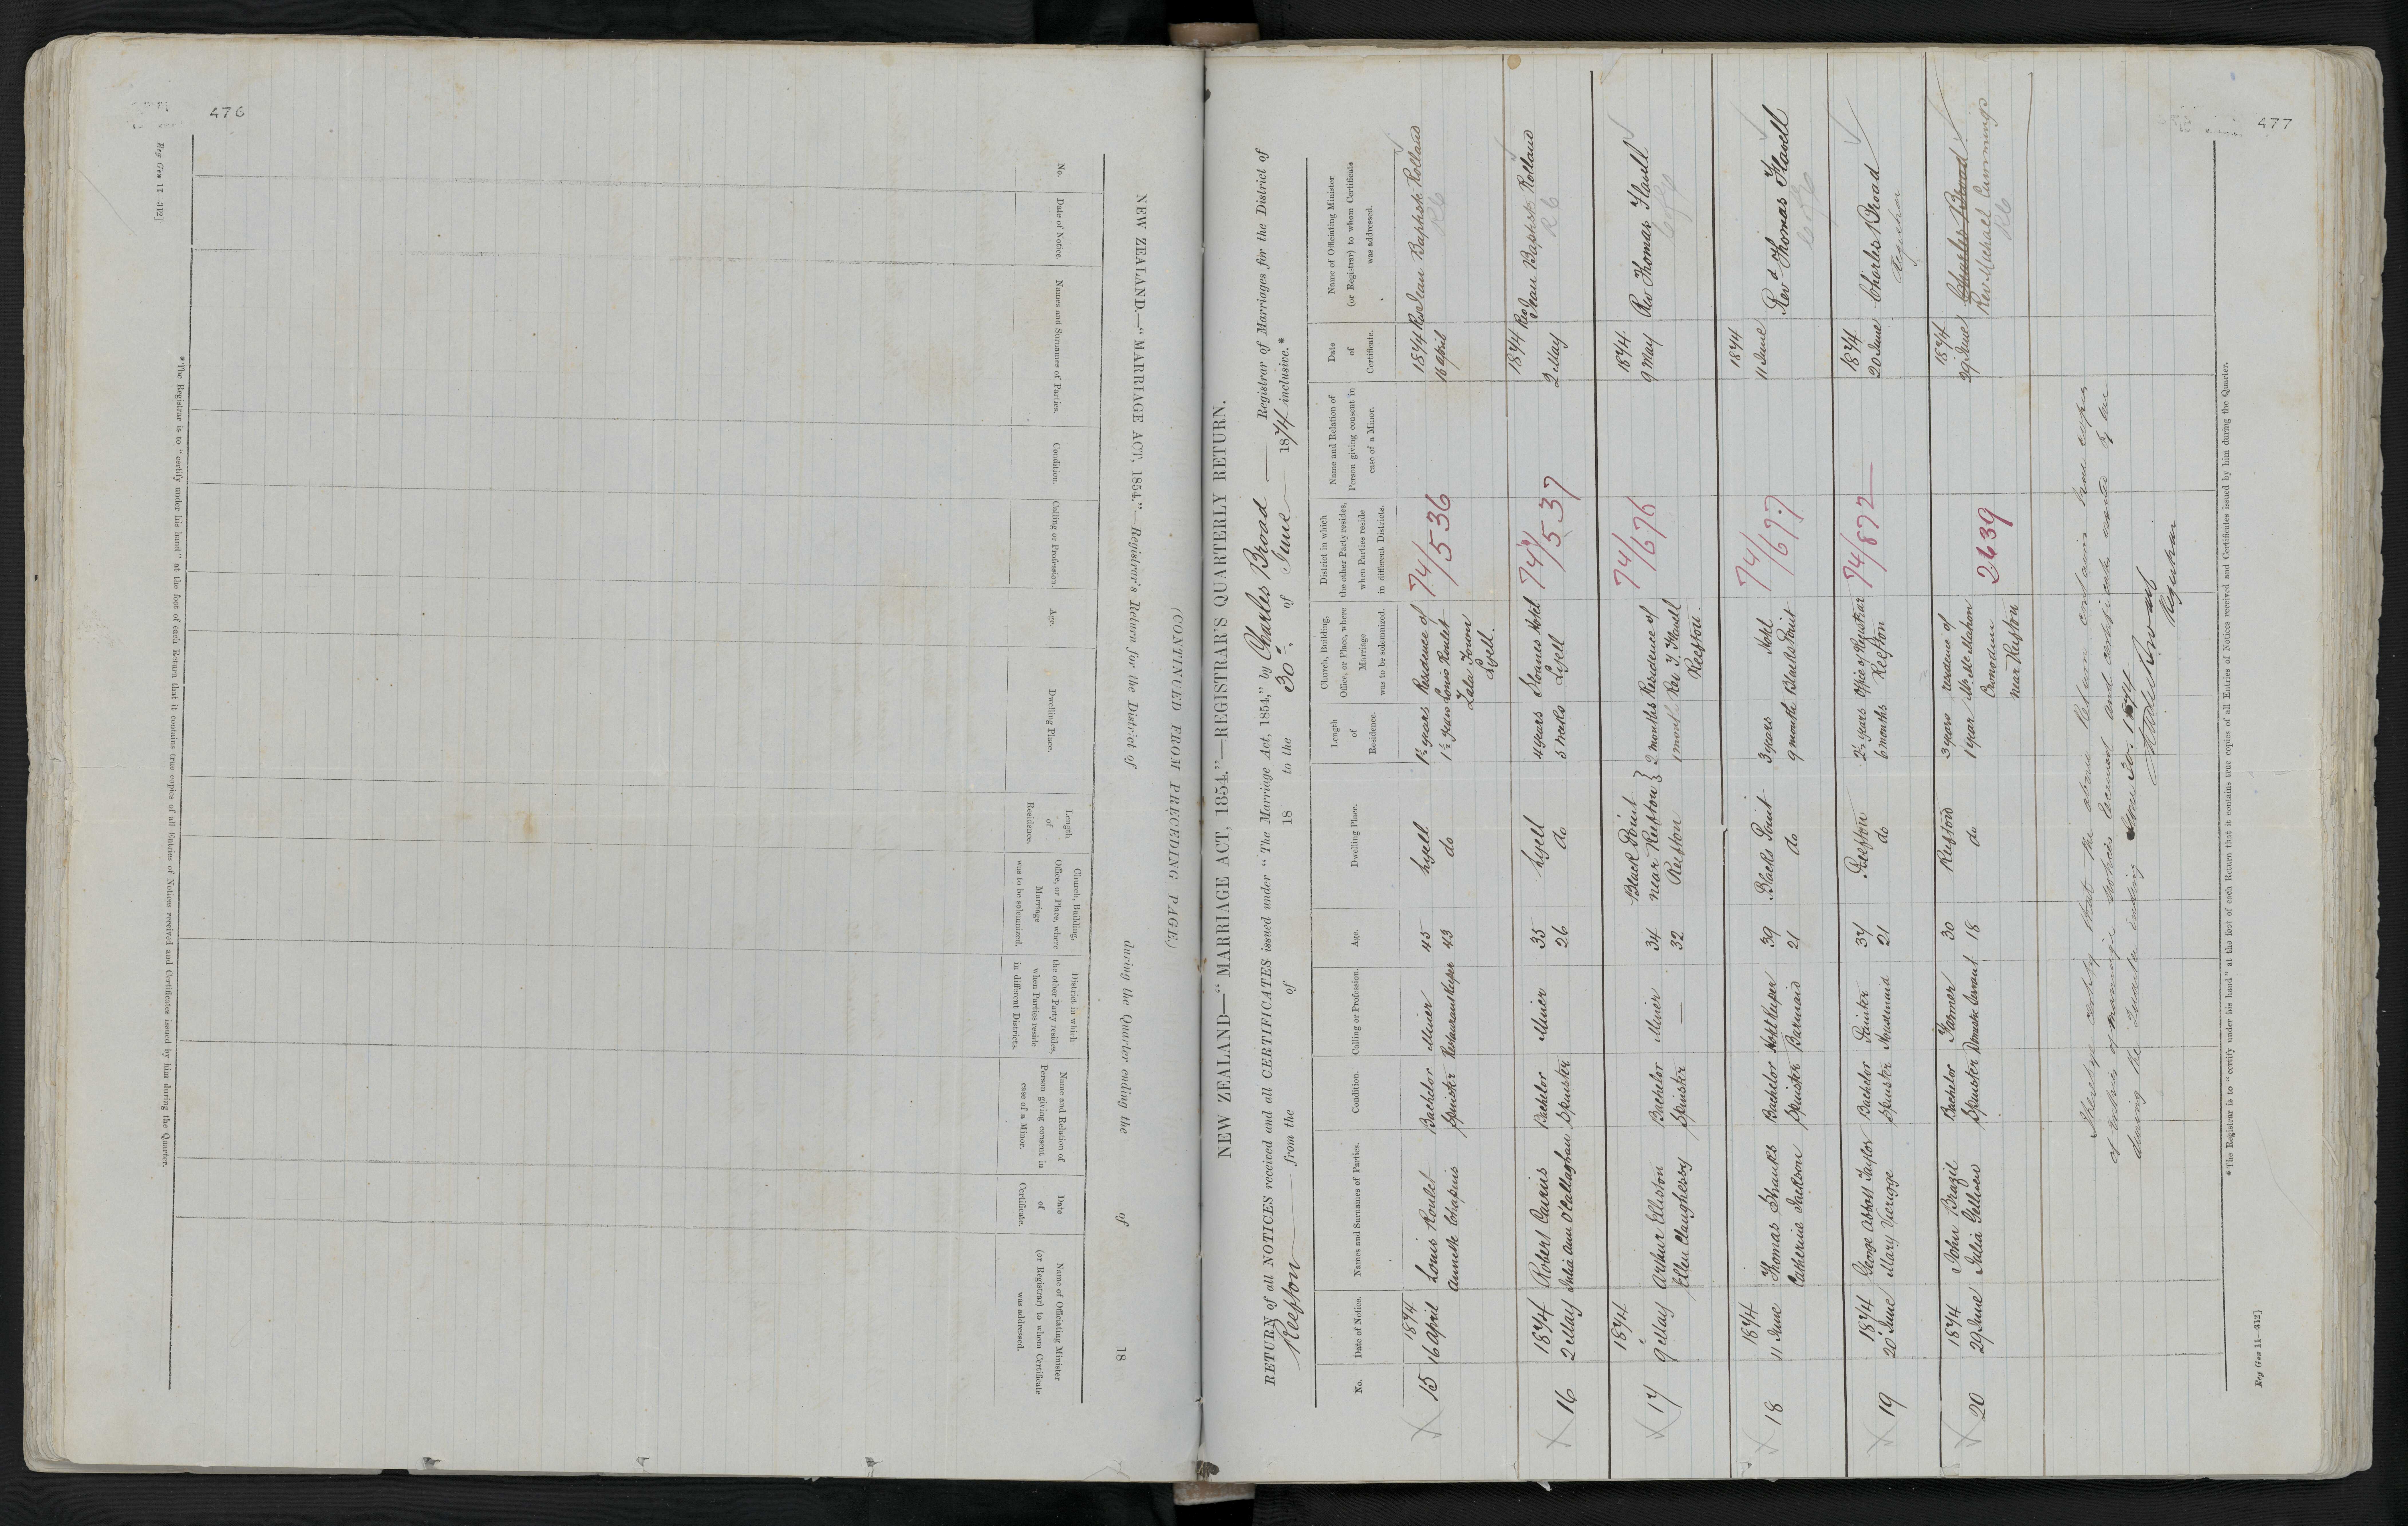 476
Reg Gen 11—312]
NEW ZEALAND.—"MARRIAGE ACT, 1854."—Registrar's Return for the District of during the Quarter ending the of 18
(CONTINUED FROM PRECEDING PAGE.)
No.
Date of Notice.
Names and Surnames of Parties.
Condition.
Calling or Profession.
Age.
Dwelling Place.
Length
of
Residence.
Church, Building,
Office, or Place, where
Marriage
was to be solemnized.
District in which
the other Party resides,
when Parties reside
in different Districts.
Name and Relation of
Person giving consent in
case of a Minor.
Date
of
Certificate.
Name of Officiating Minister
(or Registrar) to whom Certificate
was addressed.
*The Registrar is to "certify under his hand" at the foot of each Return that it contains true copies of all Entries of Notices received and Certificates issued by him during the Quarter.
477
NEW ZEALAND—"MARRIAGE ACT, 1854."—REGISTRAR'S QUARTERLY RETURN.
RETURN of all NOTICES received and all CERTIFICATES issued under "The Marriage Act, 1854," by Charles Broad Registrar of Marriages for the District of
Reefton from the of 18 to the 30th of June 1874 inclusive.*
No.
Date of Notice.
Names and Surnames of Parties.
Condition.
Calling or Profession.
Age.
Dwelling Place.
Length
of
Residence.
Church, Building,
Office, or Place, where
Marriage
was to be solemnized.
District in which
the other Party resides,
when Parties reside
in different Districts.
Name and Relation of
Person giving consent in
case of a Minor.
Date
of
Certificate.
Name of Officiating Minister
(or Registrar) to whom Certificate
was addressed.
15
1874
16 April
Louis Roulet
Annette Chapuis
Bachelor
Spinster
Miner
Restaurant Keeper
45
43
Lyell
do
1½ years
1½ years
Residence of
Louis Roulet
Lyell.
74/536
1874
16 April
Rev Jean Baptiste Rolland
RC
16
1874
2 May
Robert Cairns
Julia Ann O'Callaghan
Bachelor
Spinster
Miner
35
26
Lyell
do
4 years
5 weeks
Sloanes Hotel
Lyell
74/537
1874
2 May
Rev
Jean Baptiste Rolland
RC
17
1874
9 May
Arthur Elliston
Ellen Claughessy
Bachelor
Spinster
Miner
—
34
32
Black Point
near Reefton
Reefton
2 months
1 month
Residence of
Rev T. Flavell
Reefton.
74/676
1874
9 May
Rev Thomas Flavell
C of E
18
1874
11 June
Thomas Shanks
Catherine Jackson
Bachelor
Spinster
Hotel Keeper
Barmaid
39
21
Blacks Point
do
3 years
9 month
Hotel
Blacks Point
74/677
1874
11 June
Revd Thomas Flavell
C of E
19
1874
20 June
George Abbott Taylor
Mary Verigge
Bachelor
Spinster
Painter
Housemaid
37
21
Reefton
do
2½ years
6 months
Office of Registrar
Reefton
74/872
1874
20 June
Charles Broad
Registrar
20
1874
29 June
John Brazil
Julia
Bachelor
Spinster
Farmer
Domestic Servant
30
18
Reefton
do
3 years
1 year
residence of
Mr McMahon
near Reefton
2639
1874
29 June
Charles Broad
Rev Michael Cummings
RC
I hereby certify that the above Return contains true copies
of entries of marriage notices received and certificates granted by me
during the Quarter ending June 30. 1874
Charles Broad
Registrar
*The Registrar is to "certify under his hand" at the foot of each Return that it contains true copies of all Entries of Notices received and Certificates issued by him during the Quarter.
Reg Gen 11—312]